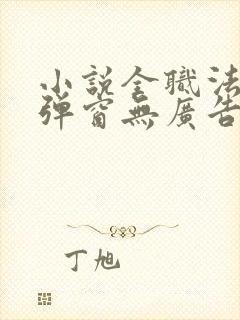 小說全職法
彈窗無廣告
丁旭